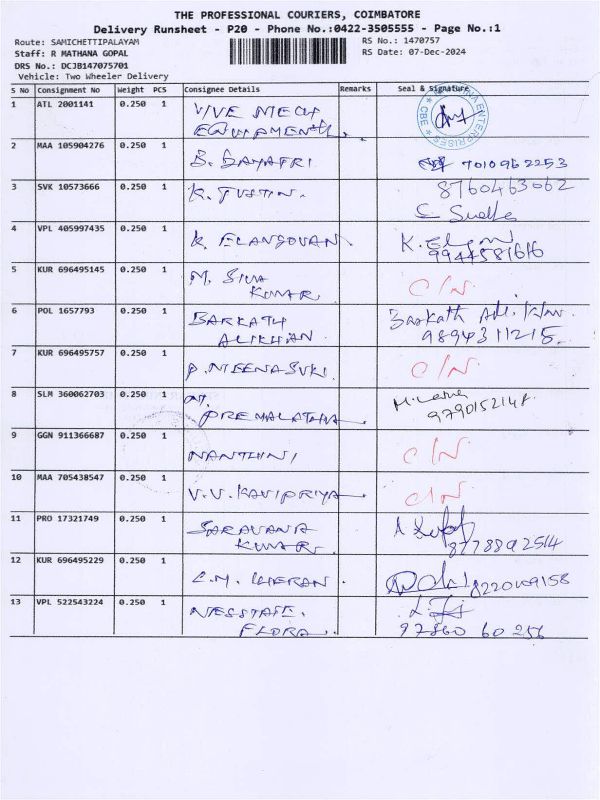 THE PROFESSIONAL COURIERS, COIMBATORE
Delivery Runsheet - P20 - Phone No.:0422-3505555 - Page No.:1
Route: SAMICHETTIPALAYAM RS No.: 1470757
Staff: R MATHANA GOPAL RS Date: 07-Dec-2024
DRS No.: DCJB147075701
Vehicle: Two Wheeler Delivery
S No Consignment No Weight PCS Consignee Details Remarks Seal & Signature
1 ATL 2001141 0.250 1 VIVE MECH
ENTERPRISES CBE
2 MAA 105904276 0.250 1 B. GAYATRI 7010962253
3 SVK 10573666 0.250 1 K. JUSTIN. 8760463062
4 VPL 405997435 0.250 1 K. ELANGOVAN
9944581616
5 KUR 696495145 0.250 1 M. SIVA C/N
KUMAR.
6 POL 1657793 0.250 1 BARKATH Barkath Ali
ALIKHAN 9894311215.
7 KUR 696495757 0.250 1 P. MEENASURI C/N
8 SLM 360062703 0.250 1
PREMALATHA
9 GGN 911366687 0.250 1 NANTHINI C/N
10 MAA 705438547 0.250 1 V.V. KAVIPRIYA C/N
11 PRO 17321749 0.250 1 SARAVANA
KUMAR. 8778892514
12 KUR 696495229 0.250 1 8220409158
13 VPL 522543224 0.250 1
FLORA. 97860 60 256